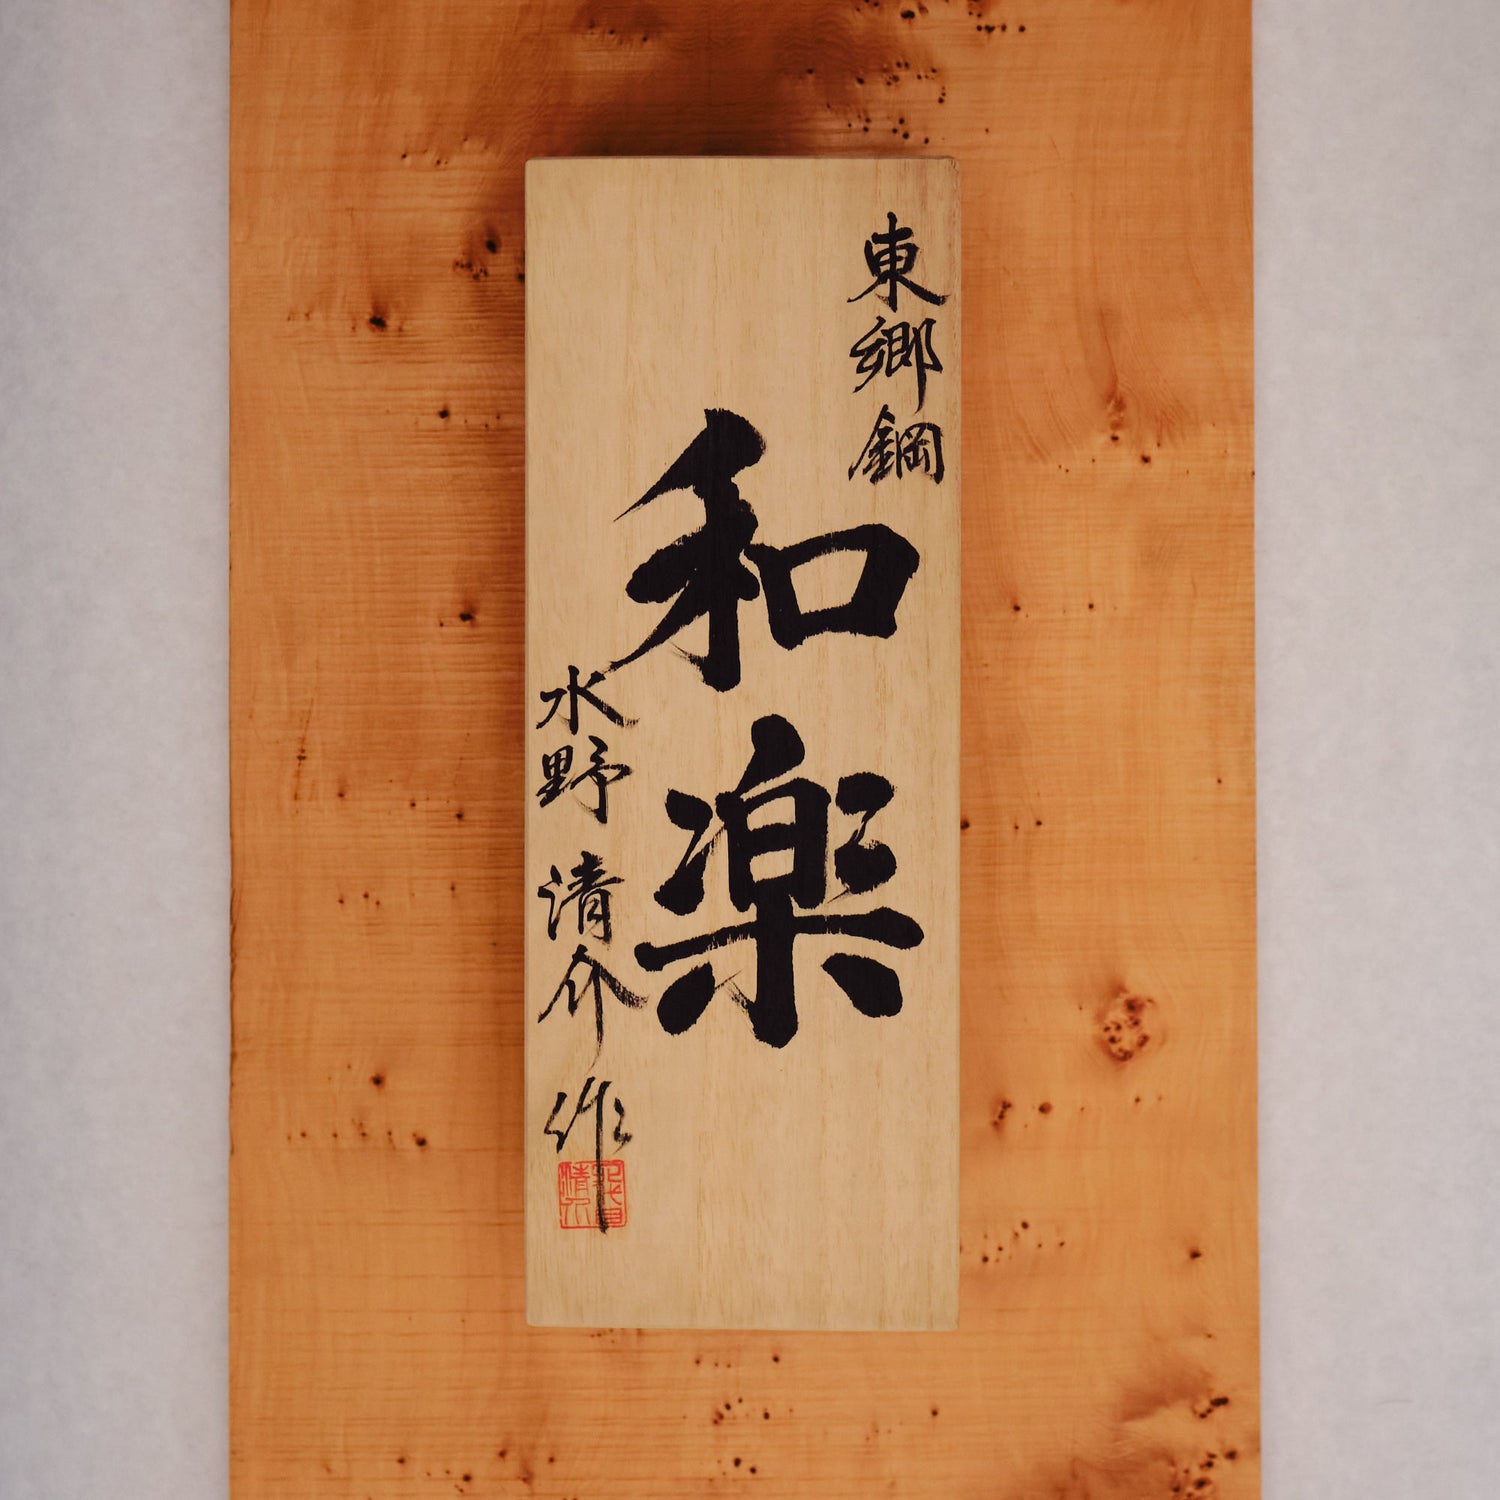 東郷鋼
和楽
水野清介作